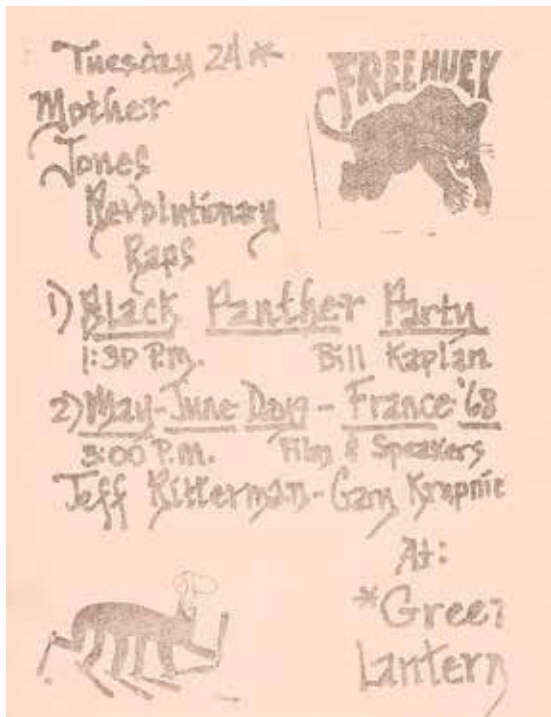 Tuesday 24*
FREE HUEY
Mother
Jones
Revolutionary
Raps
1) Black Panther Party
1:30 P.M. Bill Kaplan
2) May-June Days - France '68
3:00 P.M. Film & Speakers
Jeff Kitterman - Gary
At:
*Green
Lantern